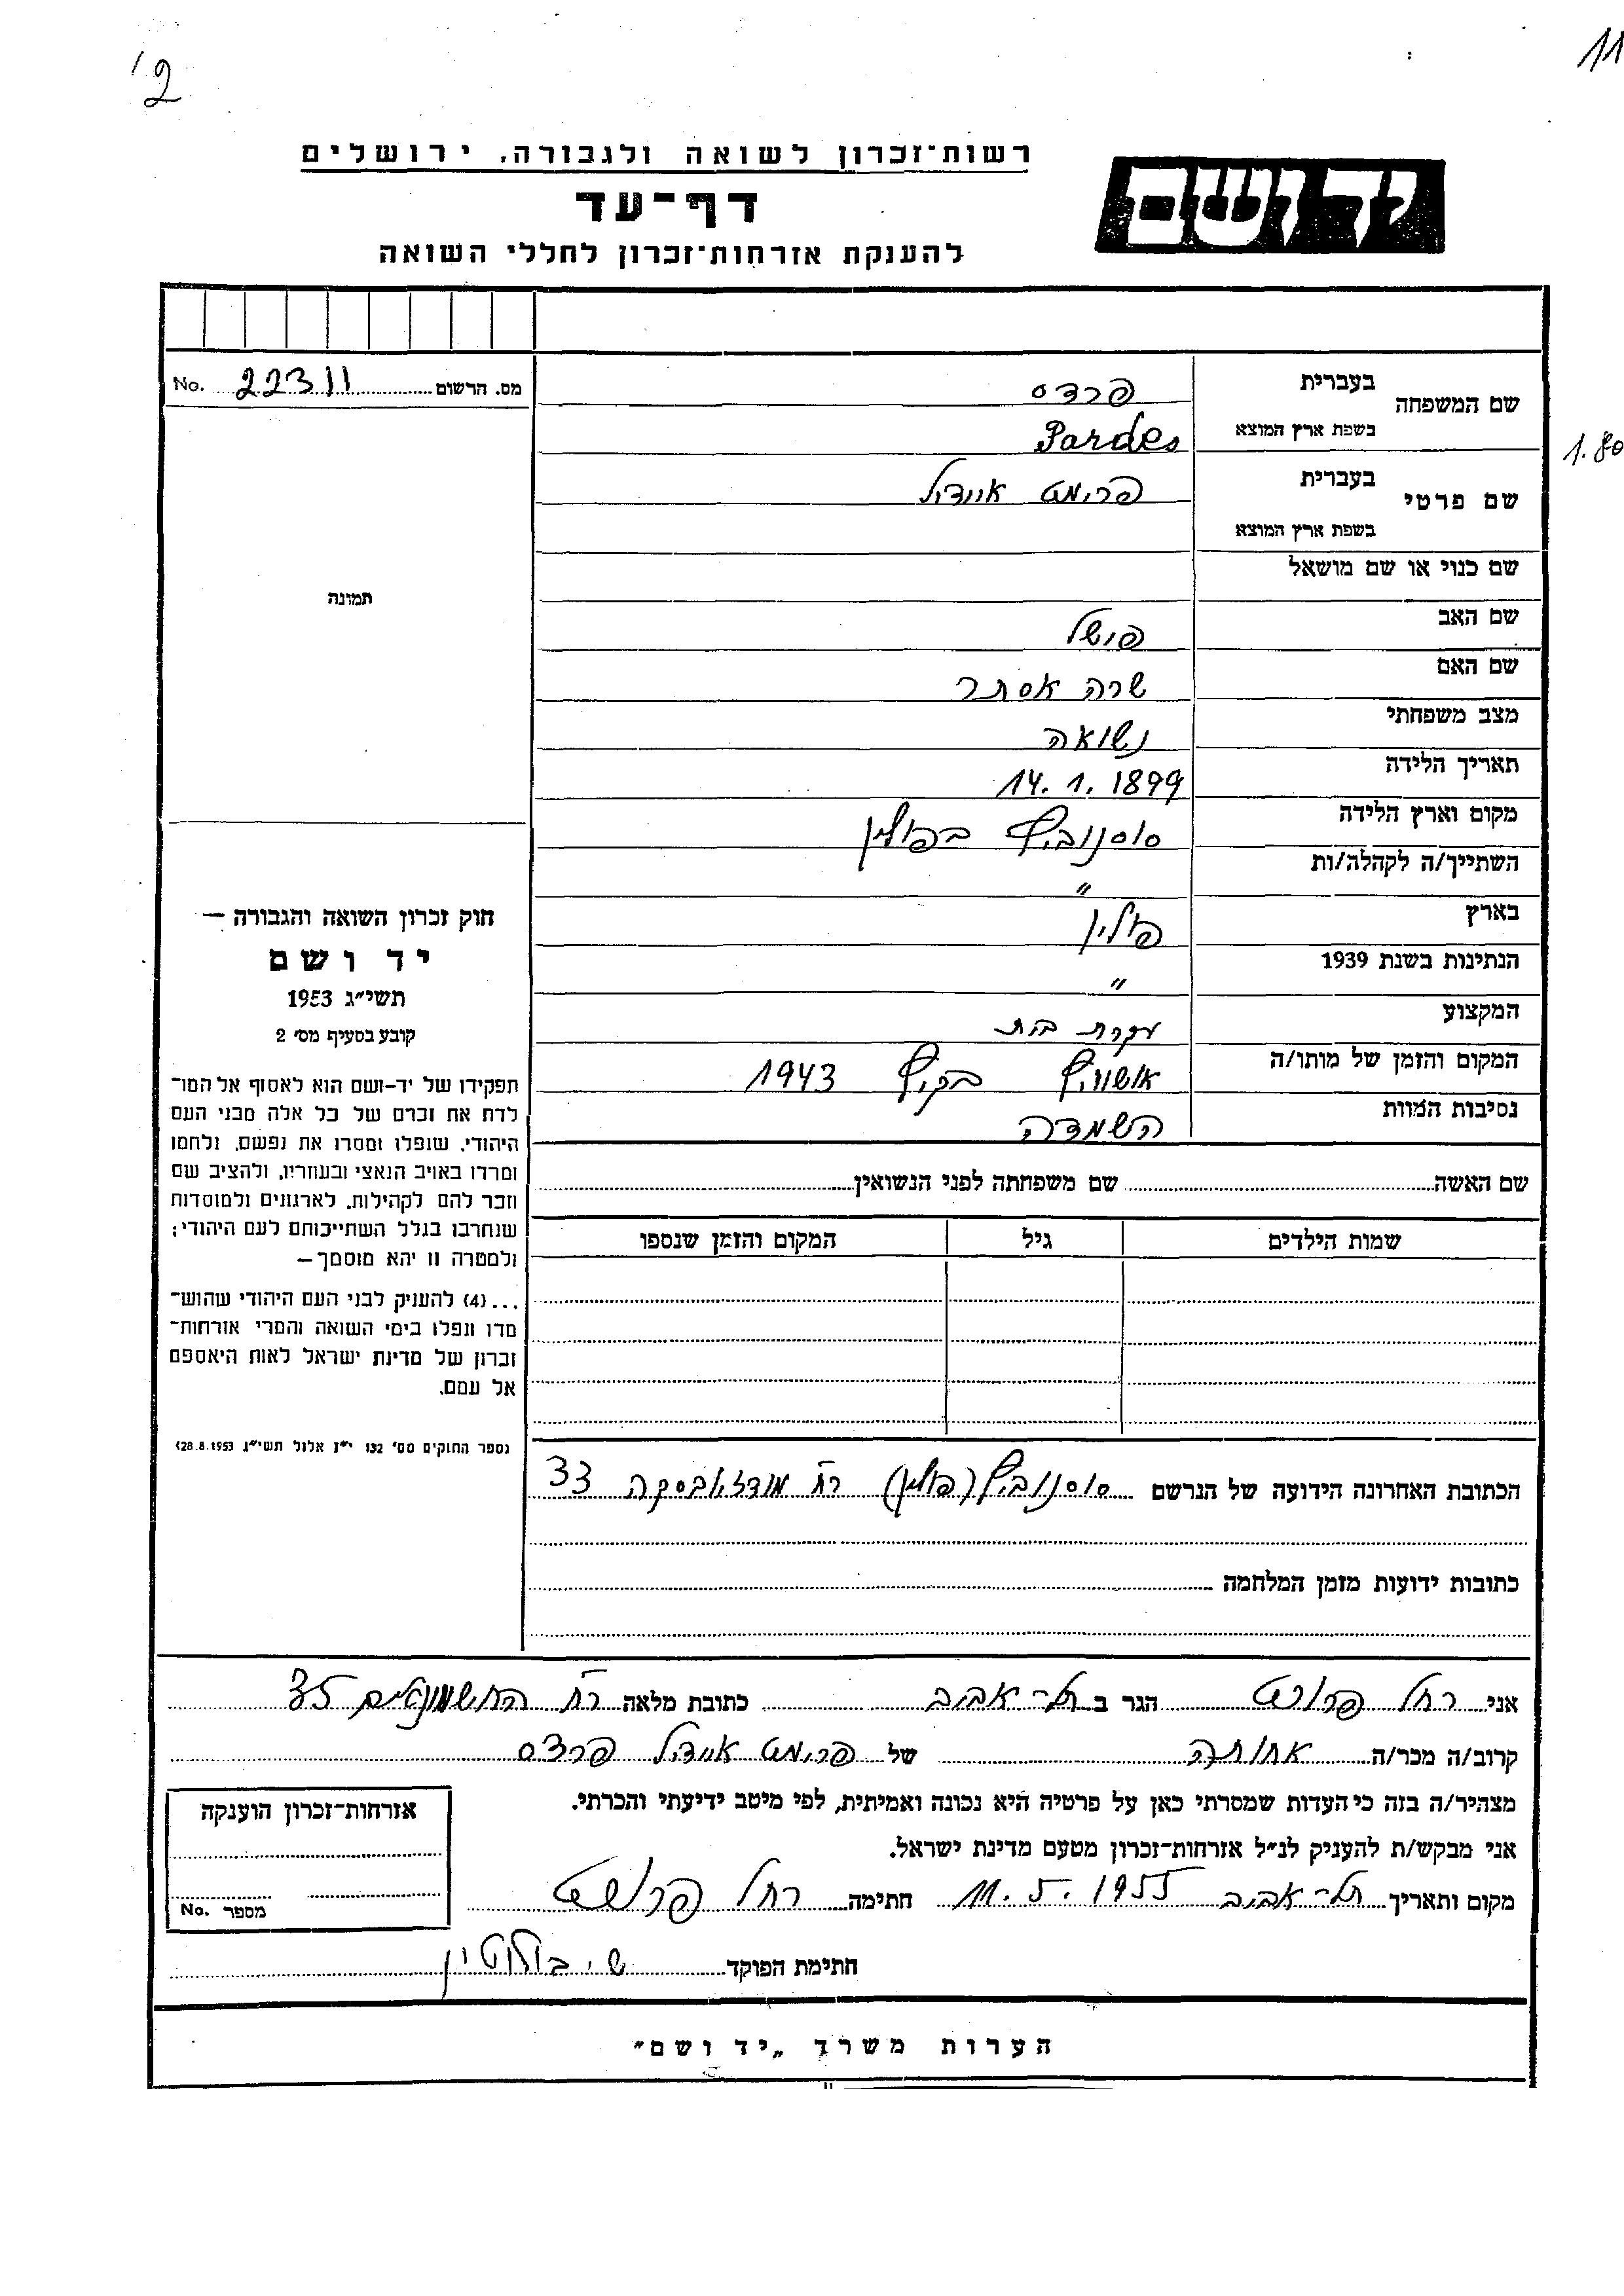 11
2
רשות־זכרון לשואה ולגבורה, ירושלים
יד ושם
דף־עד
להענקת אזרחות־זכרון לחללי השואה
מס. הרשום 22311 No.
שם המשפחה בעברית פרדס
בשפת ארץ המוצא Pardes
1.80
שם פרטי בעברית פרימט איידיל
בשפת ארץ המוצא
שם כנוי או שם מושאל
תמונה
שם האב פישל
שם האם שרה אסתר
מצב משפחתי נשואה
תאריך הלידה 14.1.1899
מקום וארץ הלידה סוסנוביץ בפולין
השתייך/ה לקהלה/ות "
בארץ פולין
הנתינות בשנת 1939 "
המקצוע עקרת בית
המקום והזמן של מותו/ה אושויץ בקיץ 1943
נסיבות המוות השמדה
חוק זכרון השואה והגבורה —
יד ושם
תשי״ג 1953
קובע בסעיף מס׳ 2
תפקידו של יד-ושם הוא לאסוף אל המו־
לדת את זכרם של כל אלה מבני העם
היהודי, שנפלו ומסרו את נפשם, נלחמו
ומרדו באויב הנאצי ובעוזריו, ולהציב שם
וזכר להם לקהילות, לארגונים ולמוסדות
שנחרבו בגלל השתייכותם לעם היהודי;
ולמטרה זו יהא מוסמך —
...(4) להעניק לבני העם היהודי שהוש־
מדו ונפלו בימי השואה והמרי אזרחות־
זכרון של מדינת ישראל לאות היאספם
אל עמם.
(ספר החוקים מס׳ 132 י״ז אלול תשי״ג 28.8.1953)
שם האשה שם משפחתה לפני הנשואין
שמות הילדים גיל המקום והזמן שנספו
הכתובת האחרונה הידועה של הנרשם סוסנוביץ (פולין) רח׳ מודז׳ובסקה 33
כתובות ידועות מזמן המלחמה
אני רחל הגר ב תל-אביב כתובת מלאה רח׳ החשמונאים 35
קרוב/ה מכר/ה אחותה של פרימט איידיל פרדס
מצהיר/ה בזה כי העדות שמסרתי כאן על פרטיה היא נכונה ואמיתית, לפי מיטב ידיעתי והכרתי.
אני מבקש/ת להעניק לנ״ל אזרחות־זכרון מטעם מדינת ישראל.
מקום ותאריך תל-אביב 11.5.1955 חתימה רחל
אזרחות־זכרון הוענקה
מספר No.
חתימת הפוקד
הערות משרד „יד ושם״